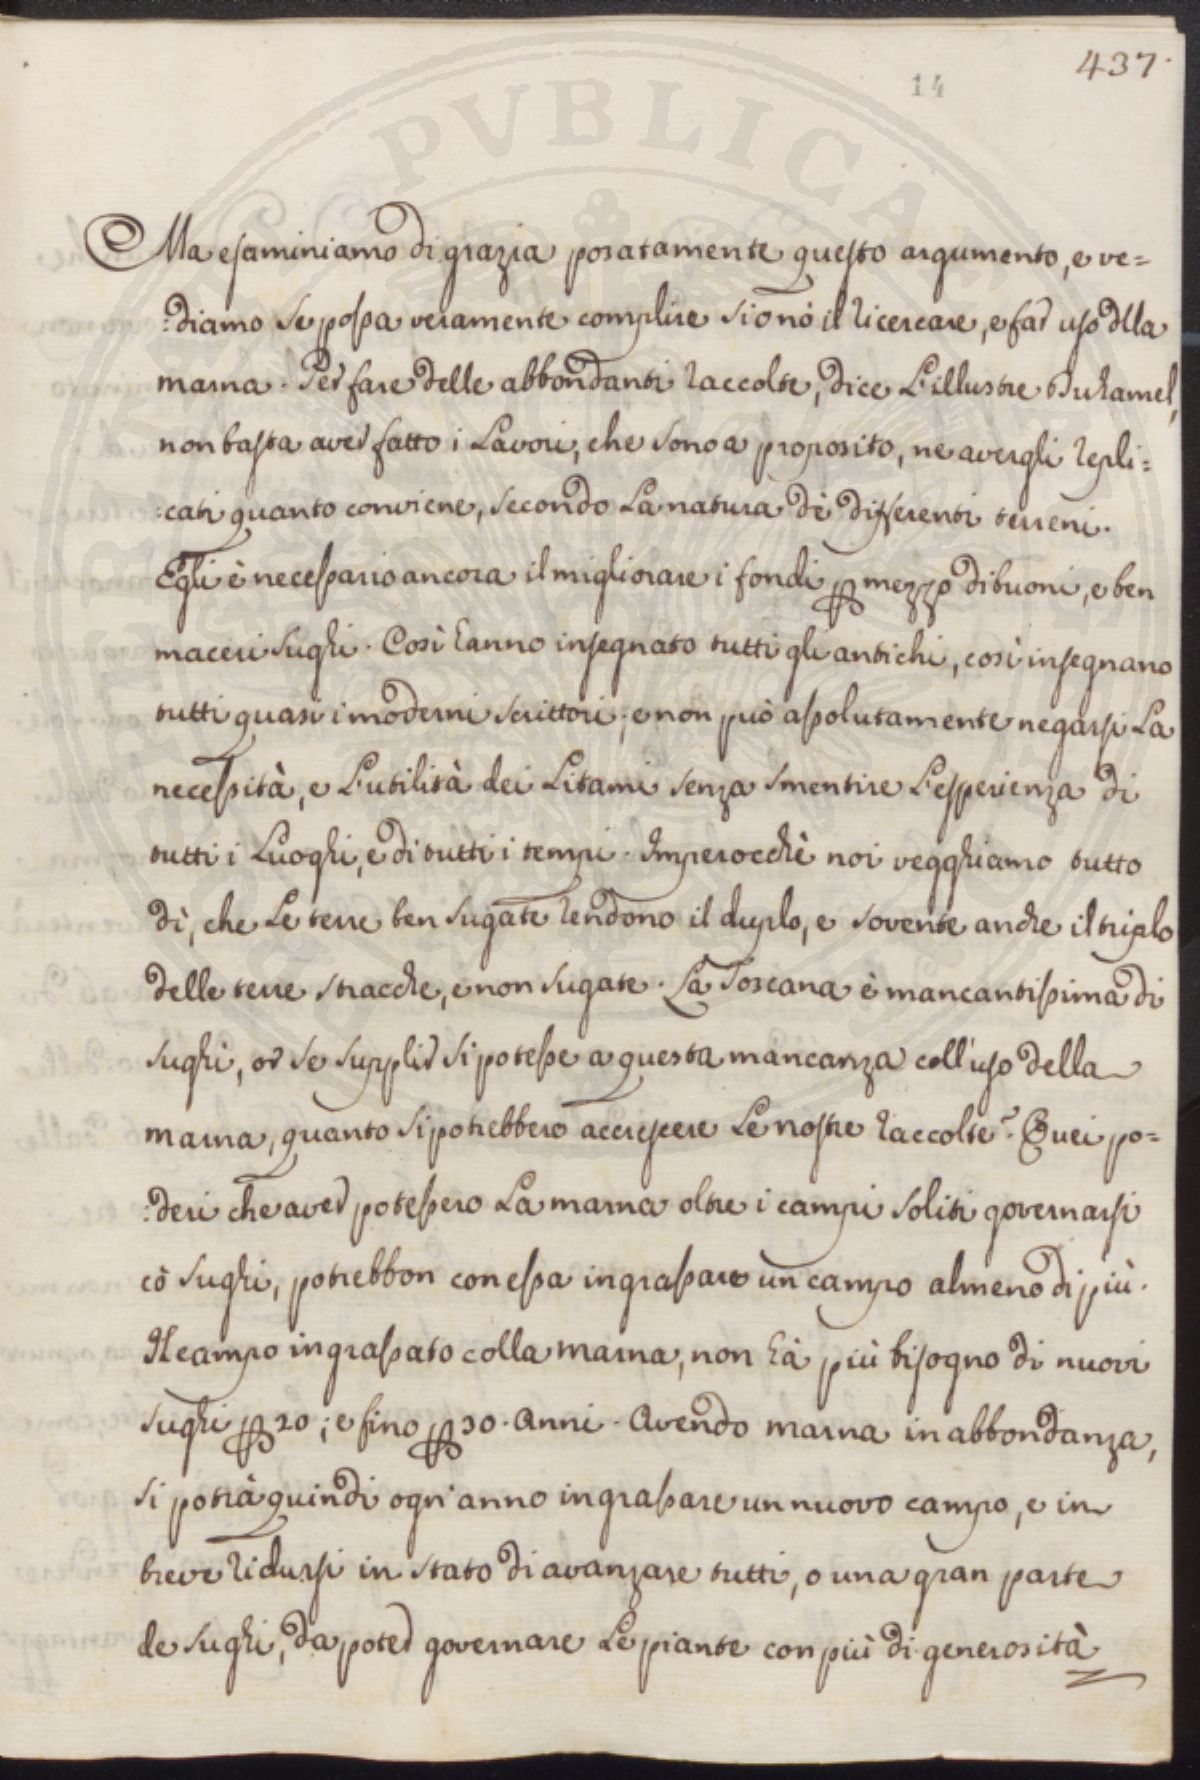 437.
14
PVBLICA
Ma esaminiamo di grazia posatamente questo argumento, e ve=
:diamo se possa veramente complire si o nò il ricercare, e far uso dlla
marna. Per fare delle abbondanti raccolte, dice L'illustre Duhamel,
non basta aver fatto i Lavori, che sono a proposito, ne avergli repli=
:cati quanto conviene, secondo La natura dè differenti terreni.
Egli è necessario ancora il migliorare i fondi p mezzo di buoni, e ben
maceri sughi. Così hanno insegnato tutti gli antichi, così insegnano
tutti quasi i moderni scrittori; e non può assolutamente negarsi La
necessità, e L'utilità dei Litami senza smentire L'esperienza di
tutti i Luoghi, e di tutti i tempi. Imperocchè noi vegghiamo tutto
dì, che Le terre ben sugate rendono il duplo, e sovente anche il triplo
delle terre stracche, e non sugate. La Toscana è mancantissima di
sughi, or se supplir si potesse a questa mancanza coll'uso della
marna, quanto si potrebbero accrescere Le nostre raccolte? Quei po=
:deri che aver potessero La marna oltre i campi soliti governarsi
cò sughi, potrebbon con essa ingrassare un campo almeno di più.
Il campo ingrassato colla marna, non hà più bisogno di nuovi
sughi p 20; e fino p 30. Anni. Avendo marna in abbondanza,
si potrà quindi ogn'anno ingrassare un nuovo campo, e in
breve ridursi in stato di avanzare tutti, o una gran parte
de sughi, da poter governare Le piante con più di generosità